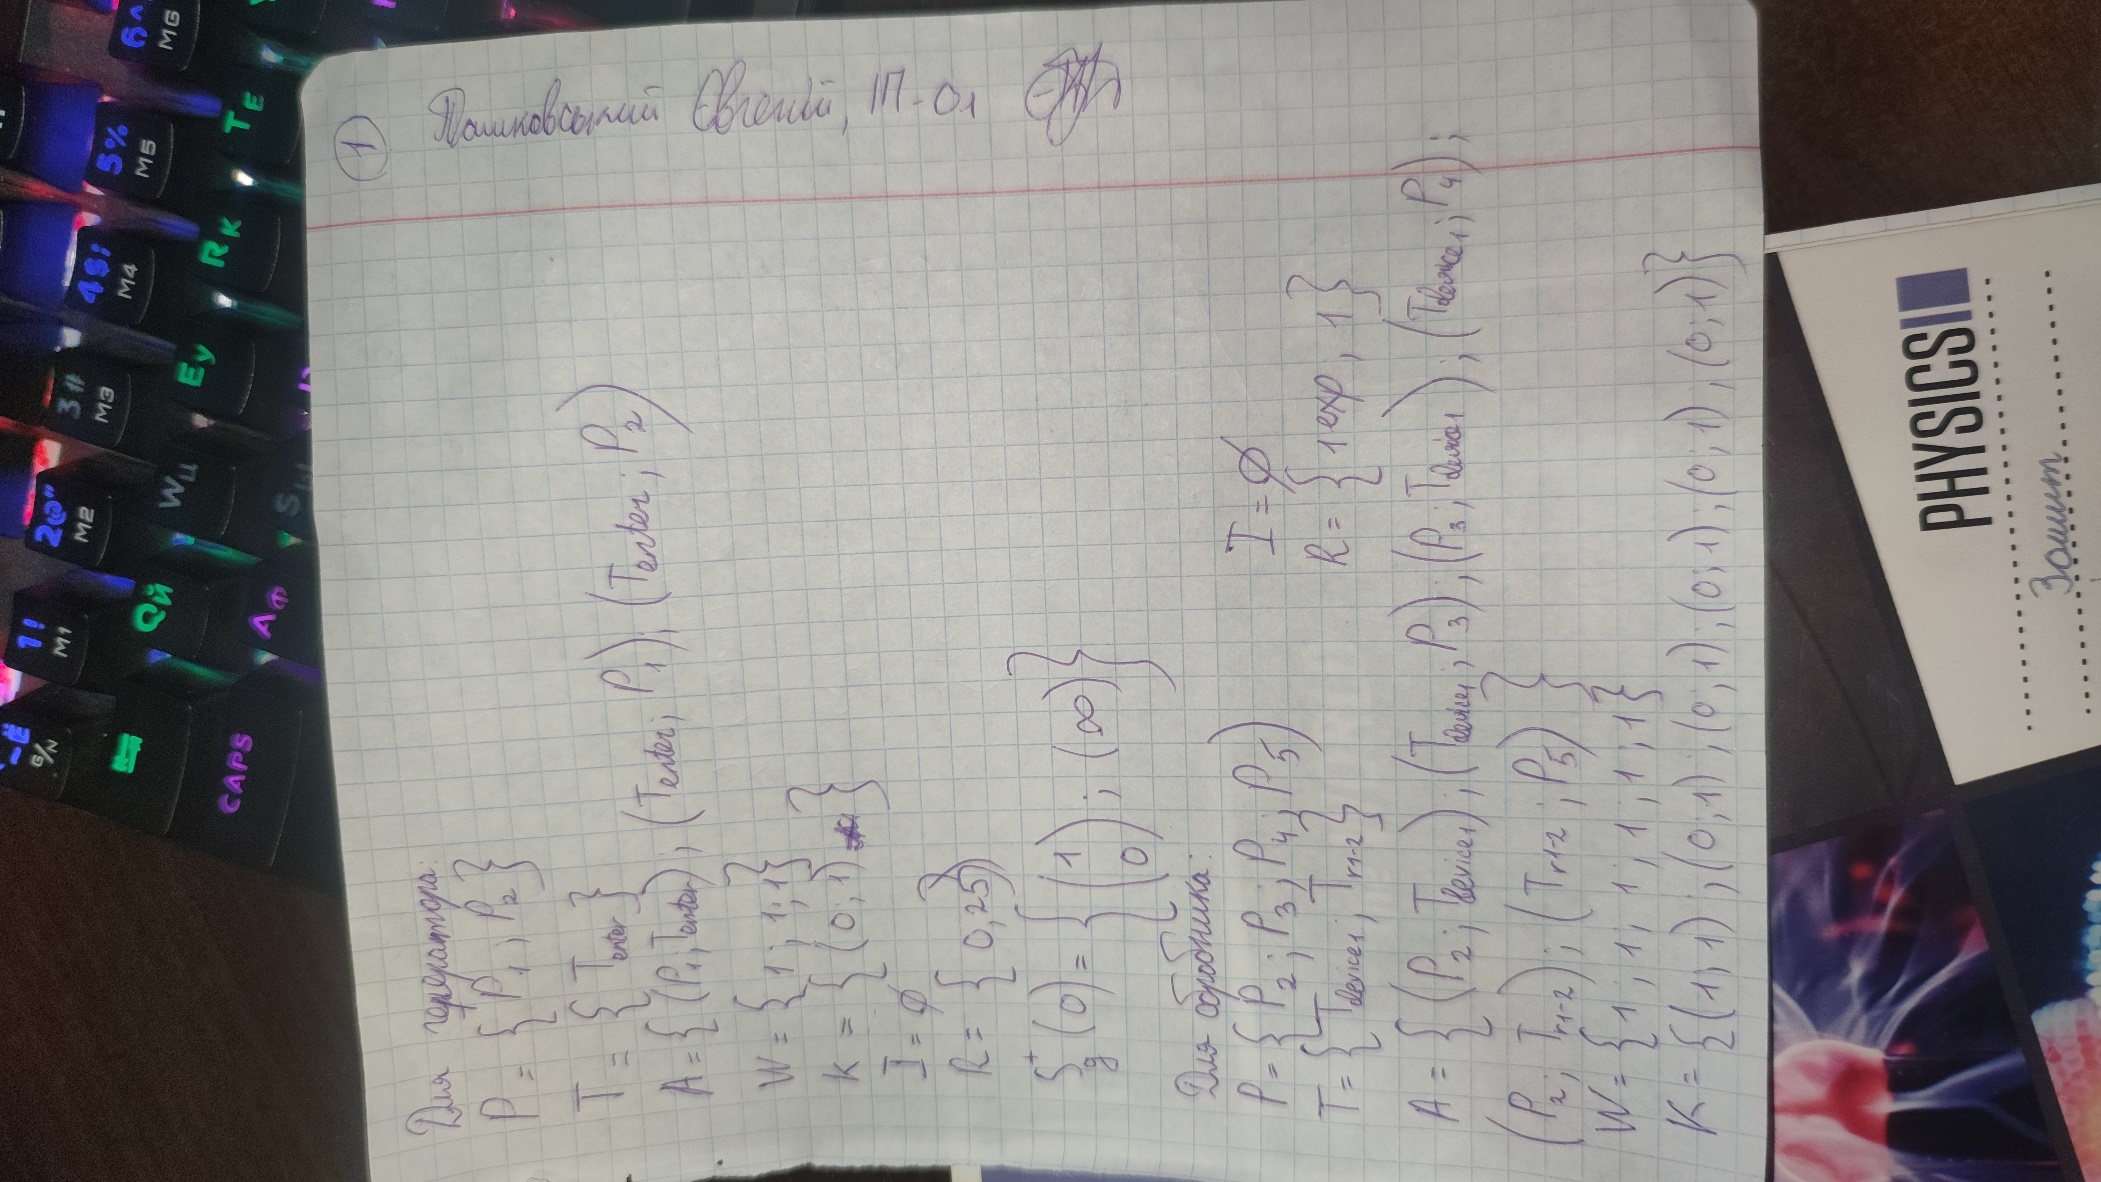 ①
Пашковський Євгеній, ІП-01
Для генератора:
P = { P₁, P₂ }
T = { Tenter }
A = { (P₁; Tenter); (Tenter; P₁); (Tenter; P₂)
W = { 1; 1; 1 }
K = { (0; 1) }
I = ∅
R = { 0,25 }
S⁺g(0) = { (1 0); (∞) }
Для обробника:
P = { P₂; P₃; P₄; P₅ )
I = ∅
T = { Tdevice1; Tr1-2 }
R = { 1exp, 1 }
A = { (P₂; Tdevice1); (Tdevice1; P₃); (P₃; Tdevice1); (Tdevice1; P₄);
(P₂; Tr1-2); (Tr1-2; P₅) }
W = { 1; 1; 1; 1; 1; 1 }
K = { (1; 1); (0; 1); (0; 1); (0; 1); (0; 1); (0; 1) }
PHYSICS
Зошит
~Ё G/N
1! M1
2@" M2
3# M3
4$; M4
5% M5
6^ M6
Qй
Wц
Eу
Rк
Tе
CAPS
Aф